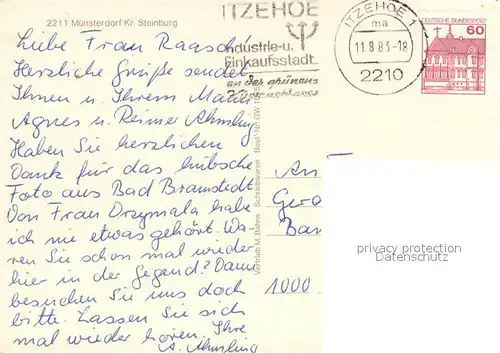 2211 Münsterdorf Kr. Steinburg
ITZEHOE
Industrie-u.
Einkaufsstadt
an der grünen
ITZEHOE 1
ma
11.8.83-18
2210
DEUTSCHE BUNDESPOST
60
Liebe Frau Raasch!
Herzliche Grüße sendet
Ihnen u. Ihrem Mann
Agnes u. Reimer Ahmling
Haben Sie herzlichen
Dank für das hübsche
Foto aus Bad Bramstedt
Von Frau Drzymala habe
ich nie etwas gehört. Wa-
ren Sie schon mal wieder
hier in der Gegend? Dann
besuchen Sie uns doch
bitte. Lassen Sie sich
mal wieder hören. Ihre
A. Ahmling
Vertrieb M. Dahms Schreibwaren Best.-Nr. GW
An
1000
privacy protection
DSGVO